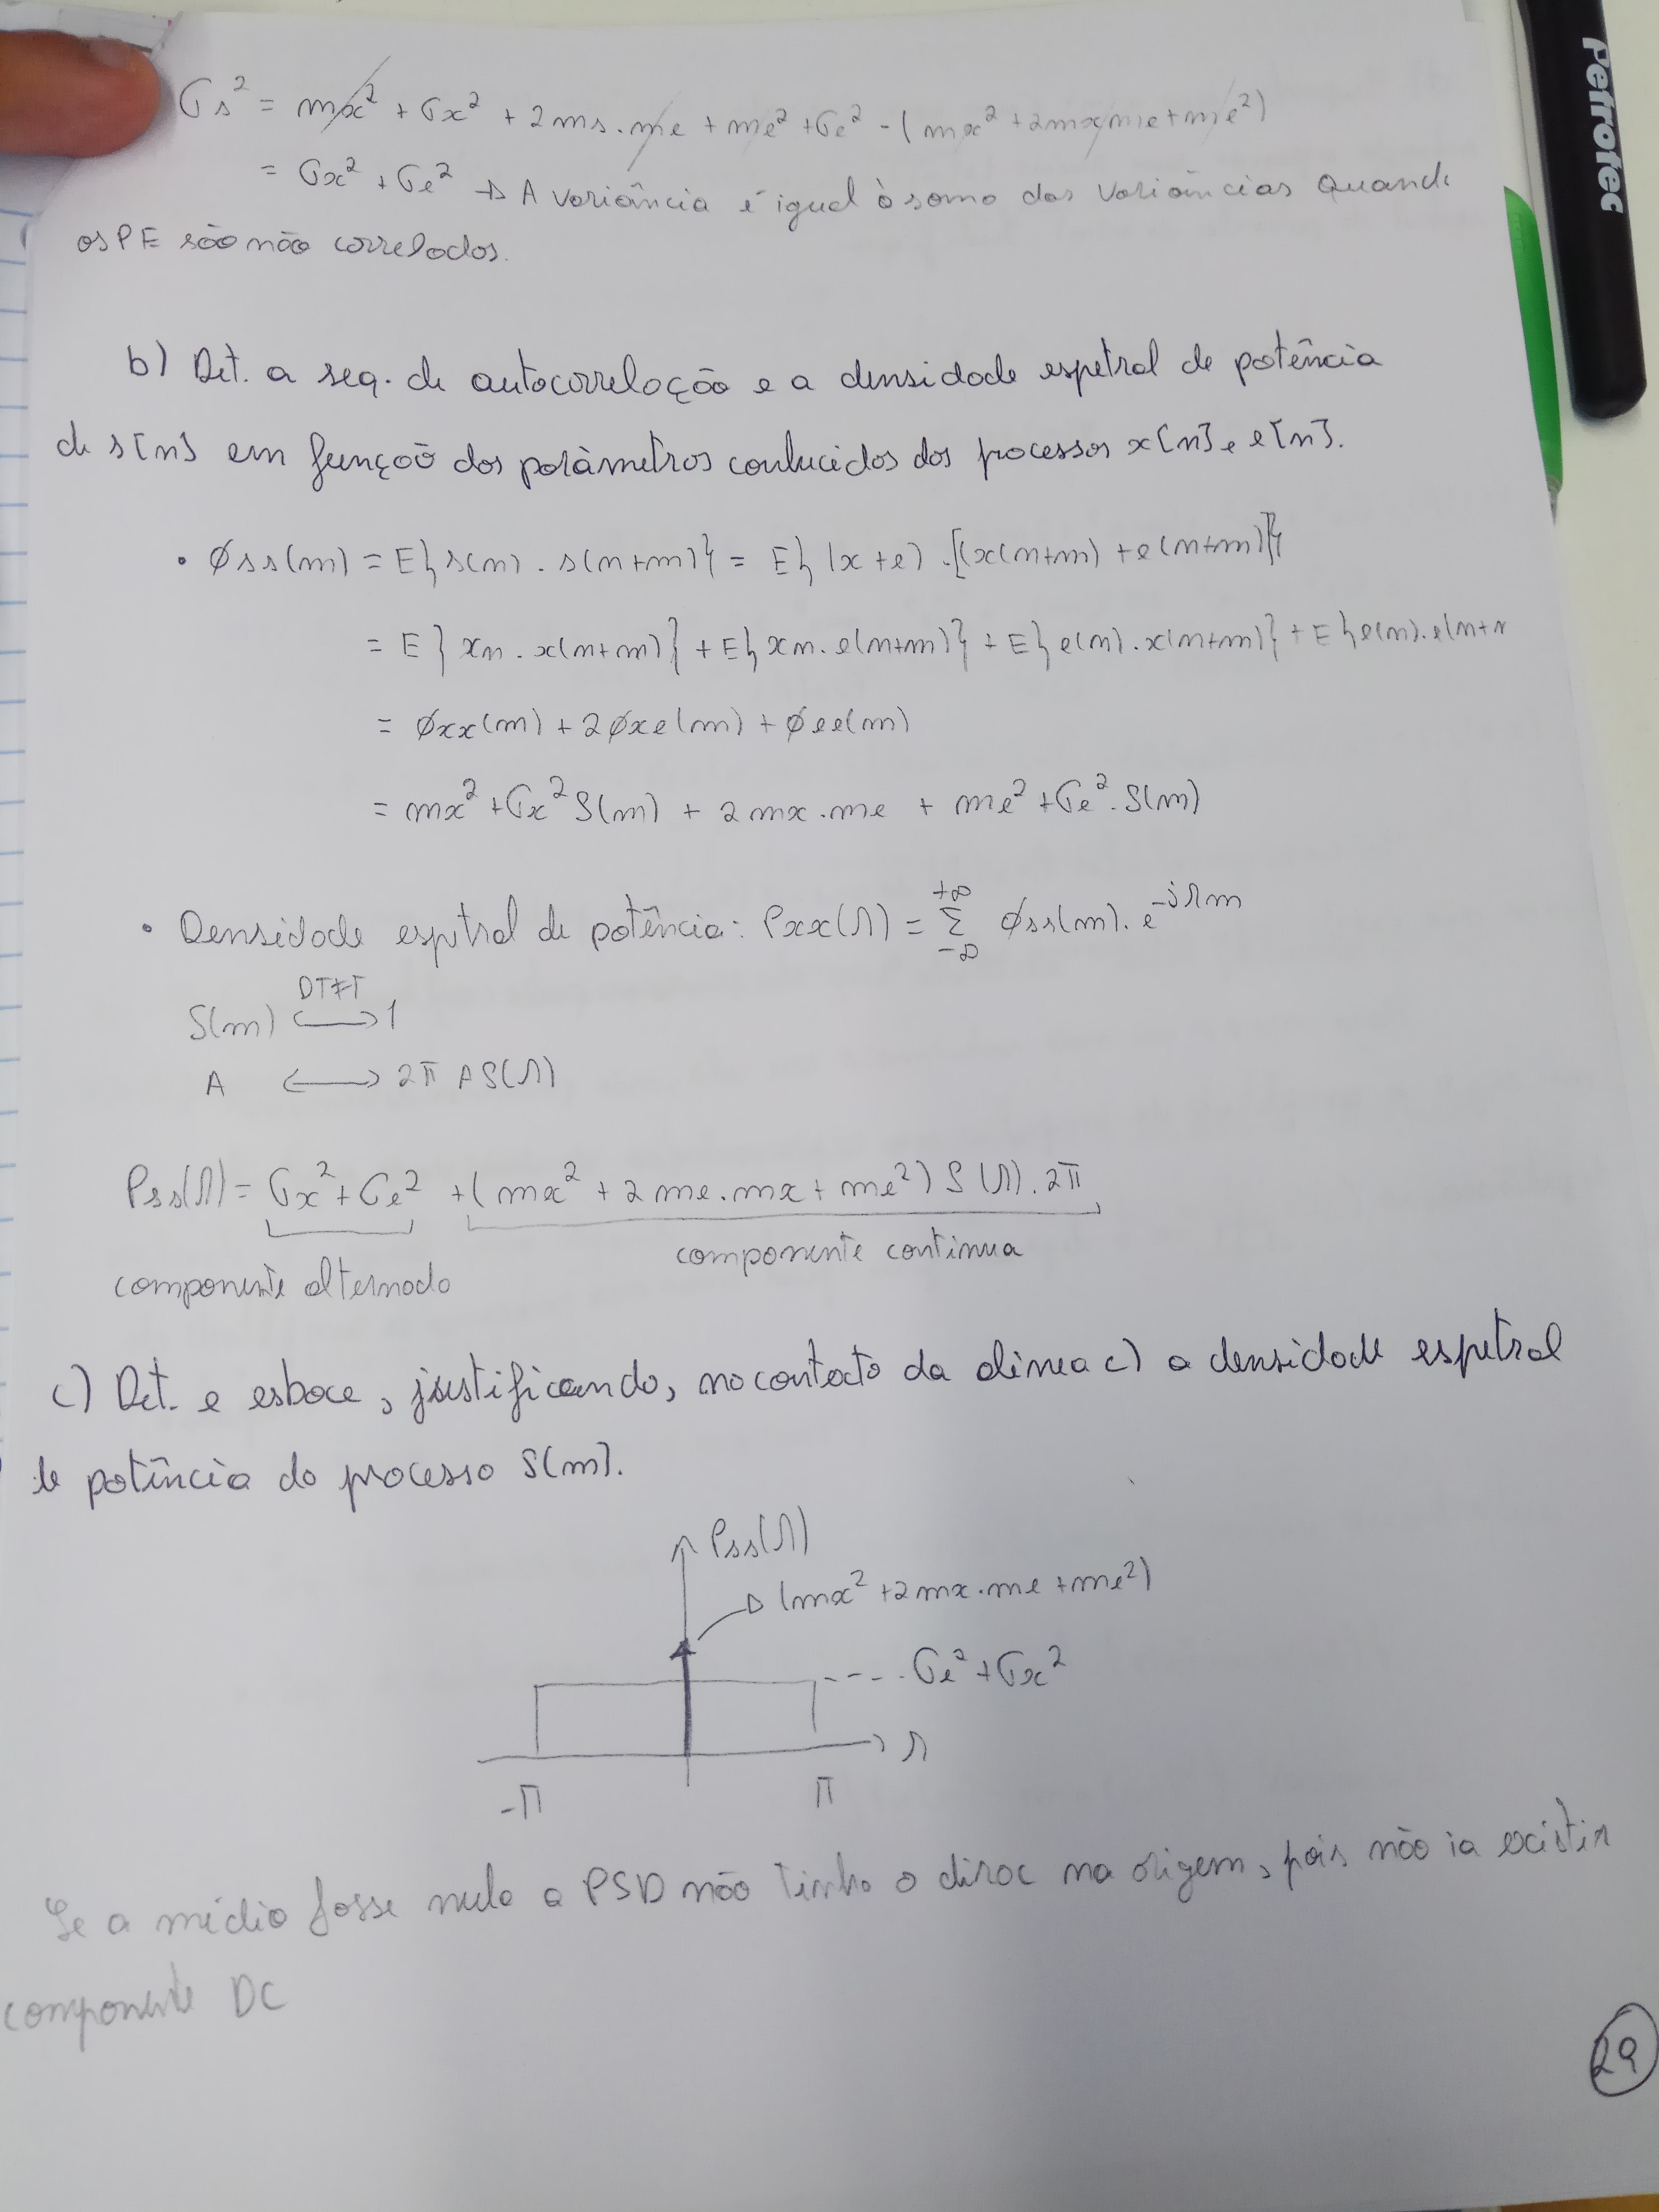 σs² = mx² + σx² + 2ms.me + me² + σe² - (mx² + 2mxme + me²)
= σx² + σe² → A variância é igual à soma das variâncias quando
os PE são não correlados.
b) Det. a seq. de autocorrelação e a densidade espetral de potência
de s[n] em função dos parâmetros conhecidos dos processos x[n] e e[n].
• φss(m) = E{s(n) . s(n+m)} = E{(x+e) . [(x(n+m) + e(n+m)]}
= E{xn . x(n+m)} + E{xn . e(n+m)} + E{e(n) . x(n+m)} + E{e(n) . e(n+m
= φxx(m) + 2φxe(m) + φee(m)
= mx² + σx² δ(m) + 2mx.me + me² + σe² . δ(m)
• Densidade espetral de potência: Pxx(Ω) = Σ φss(m) . e^-jΩm
+∞
-∞
DTFT
δ(m) ⟷ 1
A ⟷ 2π A δ(Ω)
Pss(Ω) = σx² + σe² + (mx² + 2me.mx + me²) δ(Ω) . 2π
componente contínua
componente alternada
c) Det. e esboce, justificando, no contexto da alínea c) a densidade espetral
de potência do processo S[m].
Pss(Ω)
→ (mx² + 2mx.me + me²)
σe² + σx²
Ω
-π
π
Se a média fosse nula a PSD não tinha o dirac na origem, pois não ia existir
componente DC
29
Petrotec